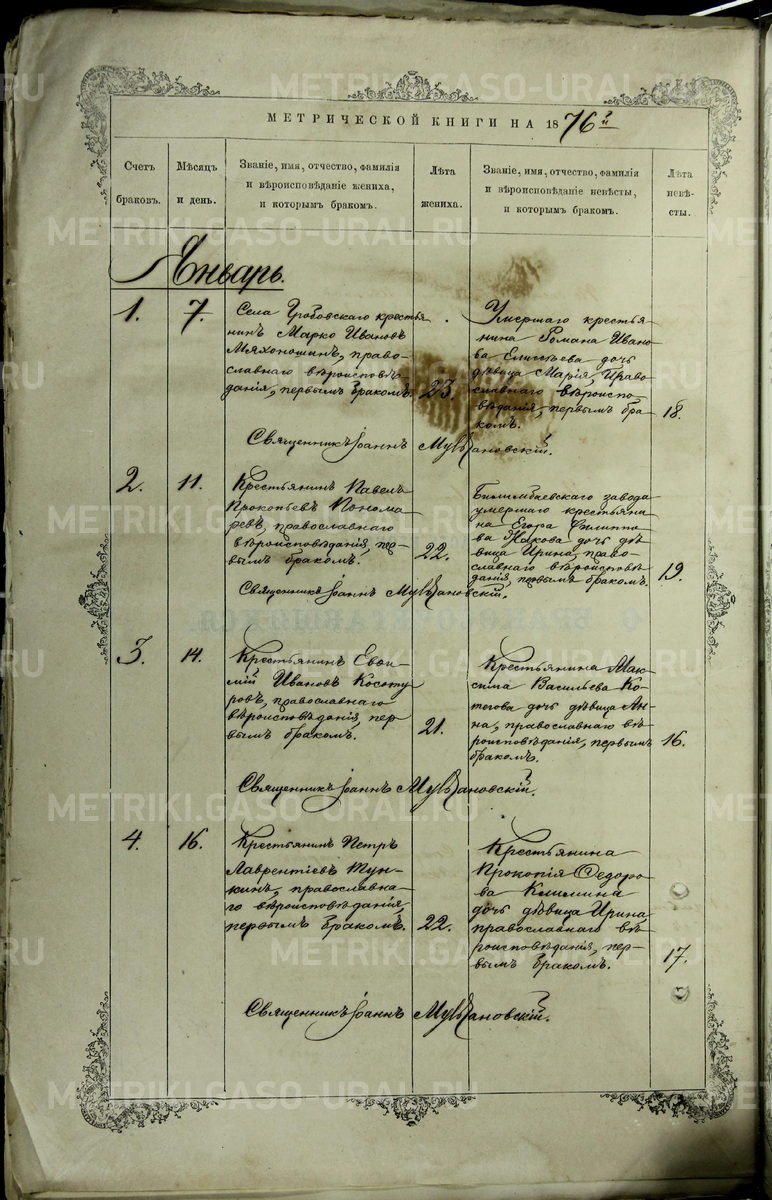 МЕТРИЧЕСКОЙ КНИГИ НА 1876й
Счетъ
браковъ.
Мѣсяцъ
и день.
Званіе, имя, отчество, фамилія
и вѣроисповѣданіе жениха,
и которымъ бракомъ.
Лѣта
жениха.
Званіе, имя, отчество, фамилія
и вѣроисповѣданіе невѣсты,
и которымъ бракомъ.
Лѣта
невѣ-
сты.
Январь.
1.
7.
Села Гробовскаго крестья
нинъ Марко Ивановъ
Мяхоношинъ, право-
славнаго вѣроисповѣ-
данія, первымъ бракомъ
23.
Умершаго крестья-
нина Романа Ивано-
ва Елисѣева дочь
дѣвица Марія, Право
славнаго вѣроиспо-
вѣданія, первымъ бра-
комъ.
18.
Священникъ Іоаннъ
2.
11.
Крестьянинъ Павелъ
Прокопьевъ Понома-
ревъ, православнаго
вѣроисповѣданія, пер-
вымъ бракомъ.
22.
Билимбаевскаго завода
умершаго крестьяни
на Егора Филиппо-
ва дочь дѣ-
вица Ирина, право-
славнаго вѣроисповѣ
данія, первымъ бракомъ.
19.
Священникъ Іоаннъ
3.
14.
Крестьянинъ Евѳи-
мій Ивановъ Косоту
ровъ, православнаго
вѣроисповѣданія, пер-
вымъ бракомъ.
21.
Крестьянина Мак-
сима Васильева Ко-
тегова дочь дѣвица Ан-
на, православнаго вѣ-
роисповѣданія, первымъ
бракомъ.
16.
Священникъ Іоаннъ
4.
16.
Крестьянинъ Петръ
Лаврентіевъ Тун-
кинъ, православна-
го вѣроисповѣданія,
первымъ бракомъ.
22.
Крестьянина
Прокопія Ѳедоро-
ва Климина
дочь дѣвица Ирина,
православнаго вѣ-
роисповѣданія, пер-
вымъ бракомъ.
17.
Священникъ Іоаннъ
METRIKI.GASO-URAL.RU